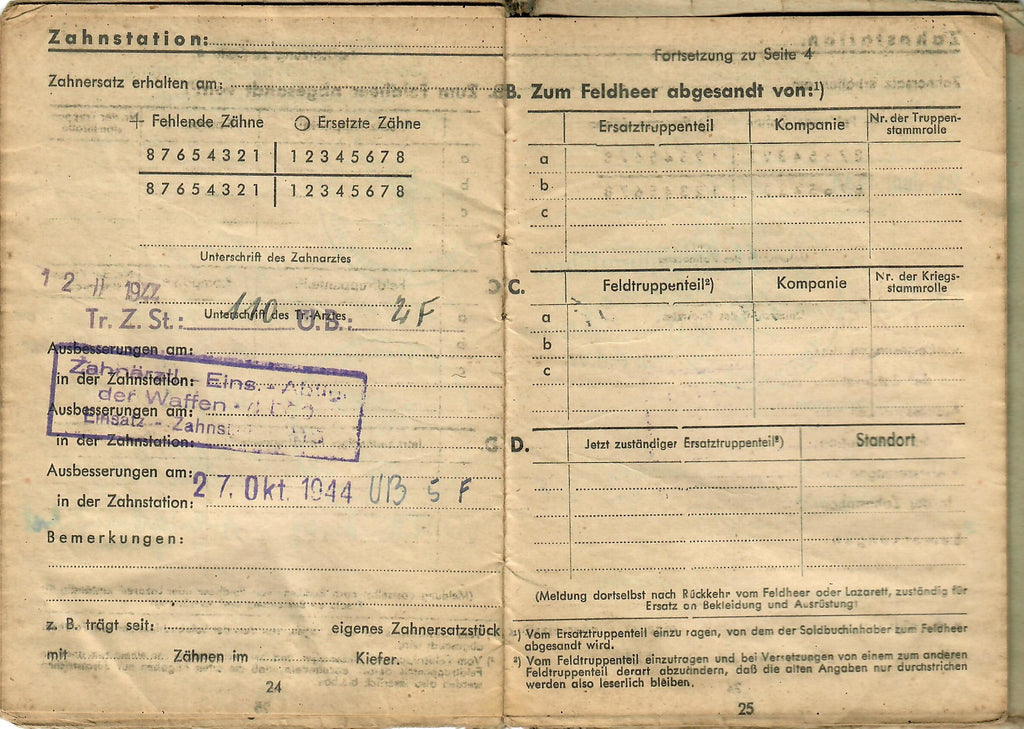 Zahnstation:
Zahnersatz erhalten am:
+ Fehlende Zähne O Ersetzte Zähne
8 7 6 5 4 3 2 1 | 1 2 3 4 5 6 7 8
8 7 6 5 4 3 2 1 | 1 2 3 4 5 6 7 8
Unterschrift des Zahnarztes
1 2 11 1944
Unterschrift des Tr.-Arztes
Tr. Z. St.: 110 U.B.: 2 F
Ausbesserungen am:
in der Zahnstation:
Ausbesserungen am:
in der Zahnstation:
Zahnärztl. - Eins. - Abtlg.
der Waffen -
Einsatz - Zahnst.
Ausbesserungen am:
27. Okt. 1944 UB 5 F
in der Zahnstation:
Bemerkungen:
z. B. trägt seit: eigenes Zahnersatzstück
mit Zähnen im Kiefer.
24
Fortsetzung zu Seite 4
B. Zum Feldheer abgesandt von:¹)
Ersatztruppenteil Kompanie Nr. der Truppen-
stammrolle
a
b
c
C. Feldtruppenteil²) Kompanie Nr. der Kriegs-
stammrolle
a
b
c
D. Jetzt zuständiger Ersatztruppenteil²) Standort
(Meldung dortselbst nach Rückkehr vom Feldheer oder Lazarett, zuständig für
Ersatz an Bekleidung und Ausrüstung)
¹) Vom Ersatztruppenteil einzutragen, von dem der Soldbuchinhaber zum Feldheer
abgesandt wird.
²) Vom Feldtruppenteil einzutragen und bei Versetzungen von einem zum anderen
Feldtruppenteil derart abzuändern, daß die alten Angaben nur durchstrichen
werden also leserlich bleiben.
25